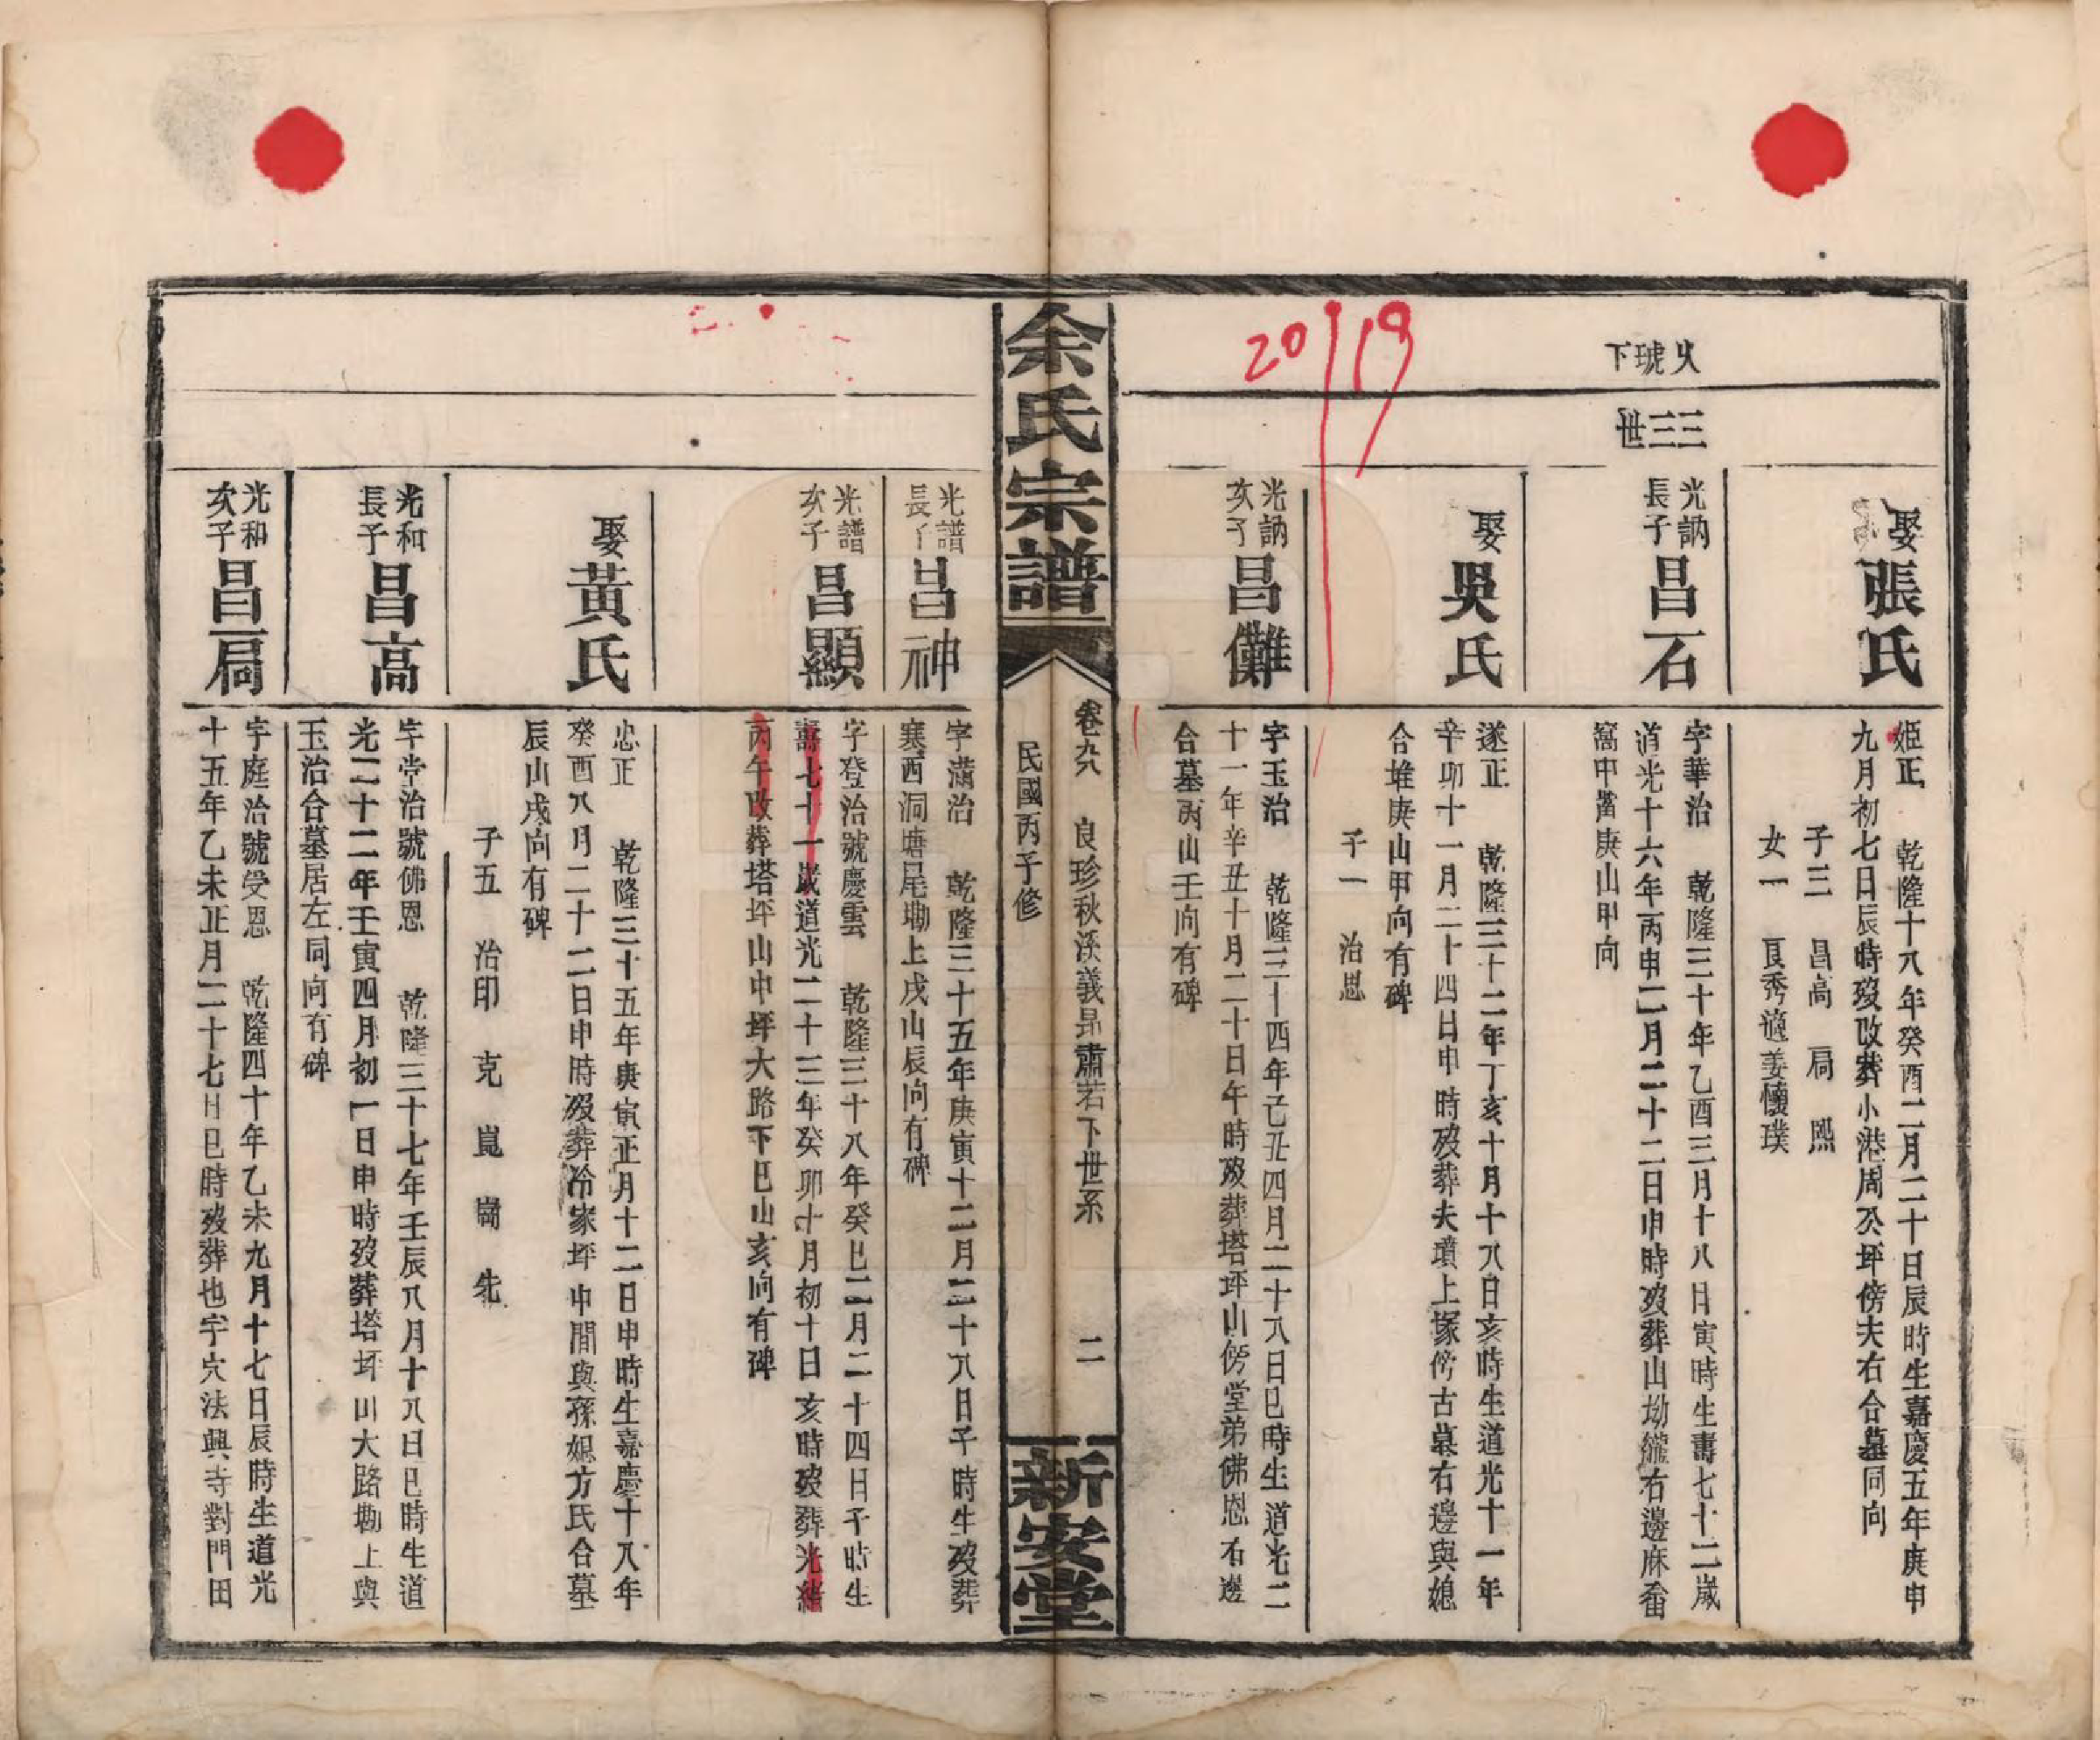 火琥下
三三世
娶張氏
姬正 乾隆十八年癸酉二月二十日辰時生嘉慶五年庚申
九月初七日辰時歿改葬小港周公坪傍夫右合墓同向
子三 昌高 局 熙
女一 貞秀適姜懷璞
光訥長子昌石
字華治 乾隆三十年乙酉三月十八日寅時生壽七十二歲
道光十六年丙申二月二十二日申時歿葬山坳龍右邊麻畬
窩中當庚山甲向
娶吳氏
遂正 乾隆三十二年丁亥十月十八日亥時生道光十一年
辛卯十一月二十四日申時歿葬夫墳上塚傍古墓右邊與媳
合堆庚山甲向有碑
子一 治思
20 19
光訥次子昌儺
字玉治 乾隆三十四年己丑四月二十八日巳時生道光二
十一年辛丑十月二十日午時歿葬塔坪山傍堂弟佛恩右邊
合墓丙山壬向有碑
余氏宗譜
卷九 良珍秋溪義昂肅若下世系 二
民國丙子修
新安堂
光譜長子昌神
字滿治 乾隆三十五年庚寅十二月二十八日子時生歿葬
寨西洞塘尾塝上戌山辰向有碑
光譜次子昌顯
字登治號慶雲 乾隆三十八年癸巳二月二十四日子時生
壽七十一歲道光二十三年癸卯十月初十日亥時歿葬光緒
丙午改葬塔坪山中坪大路下巳山亥向有碑
娶黃氏
忠正 乾隆三十五年庚寅正月十二日申時生嘉慶十八年
癸酉八月二十二日申時歿葬冷家坪中間與孫媳方氏合墓
辰山戌向有碑
子五 治印 克 崑 崗 先
光和長子昌高
字堂治號佛恩 乾隆三十七年壬辰八月十八日巳時生道
光二十二年壬寅四月初一日申時歿葬塔坪山大路塝上與
玉治合墓居左同向有碑
光和次子昌局
字庭治號受恩 乾隆四十年乙未九月十七日辰時生道光
十五年乙未正月二十七日巳時歿葬也字穴法興寺對門田